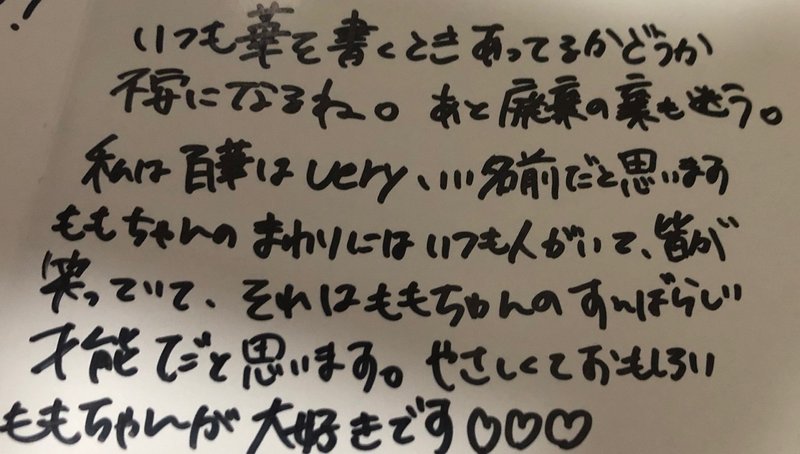 いつも華を書くときあってるかどうか
不安になるね。あと廃棄の棄も迷う。
私は百華はvery、いい名前だと思います
ももちゃんのまわりにはいつも人がいて、皆が
笑っていて、それはももちゃんのすんばらしい
才能だと思います。やさしくておもしろい
ももちゃんが大好きです♡♡♡